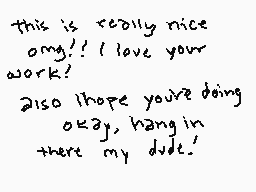 this is really nice
omg!! I love your
work!
also ihope you're doing
okay, hang in
there my dude!